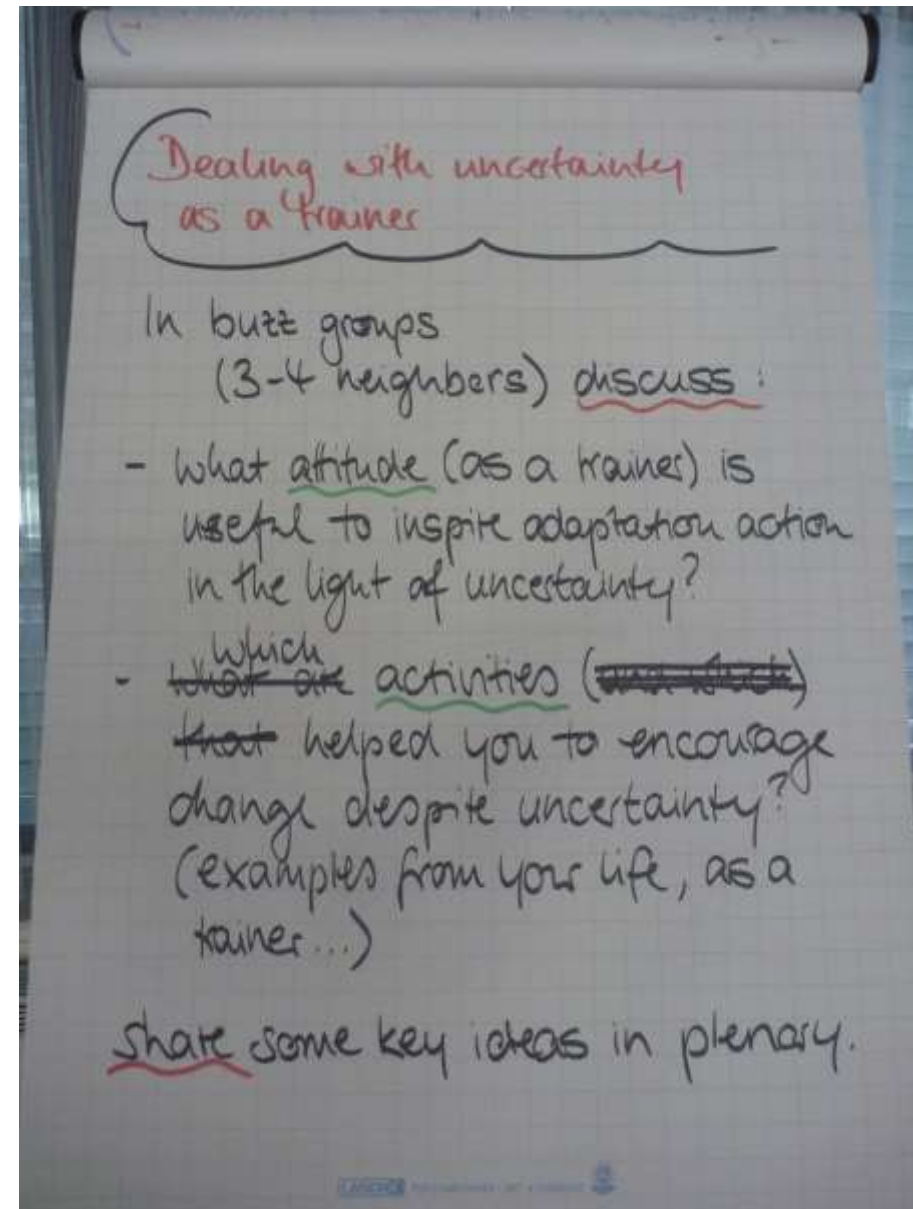 Dealing with uncertainty
as a trainer
In buzz groups
(3-4 neighbers) discuss:
- What attitude (as a trainer) is
useful to inspire adaptation action
in the light of uncertainty?
which
- What are activities (
that helped you to encourage
change despite uncertainty?
(examples from your life, as a
trainer...)
Share some key ideas in plenary.